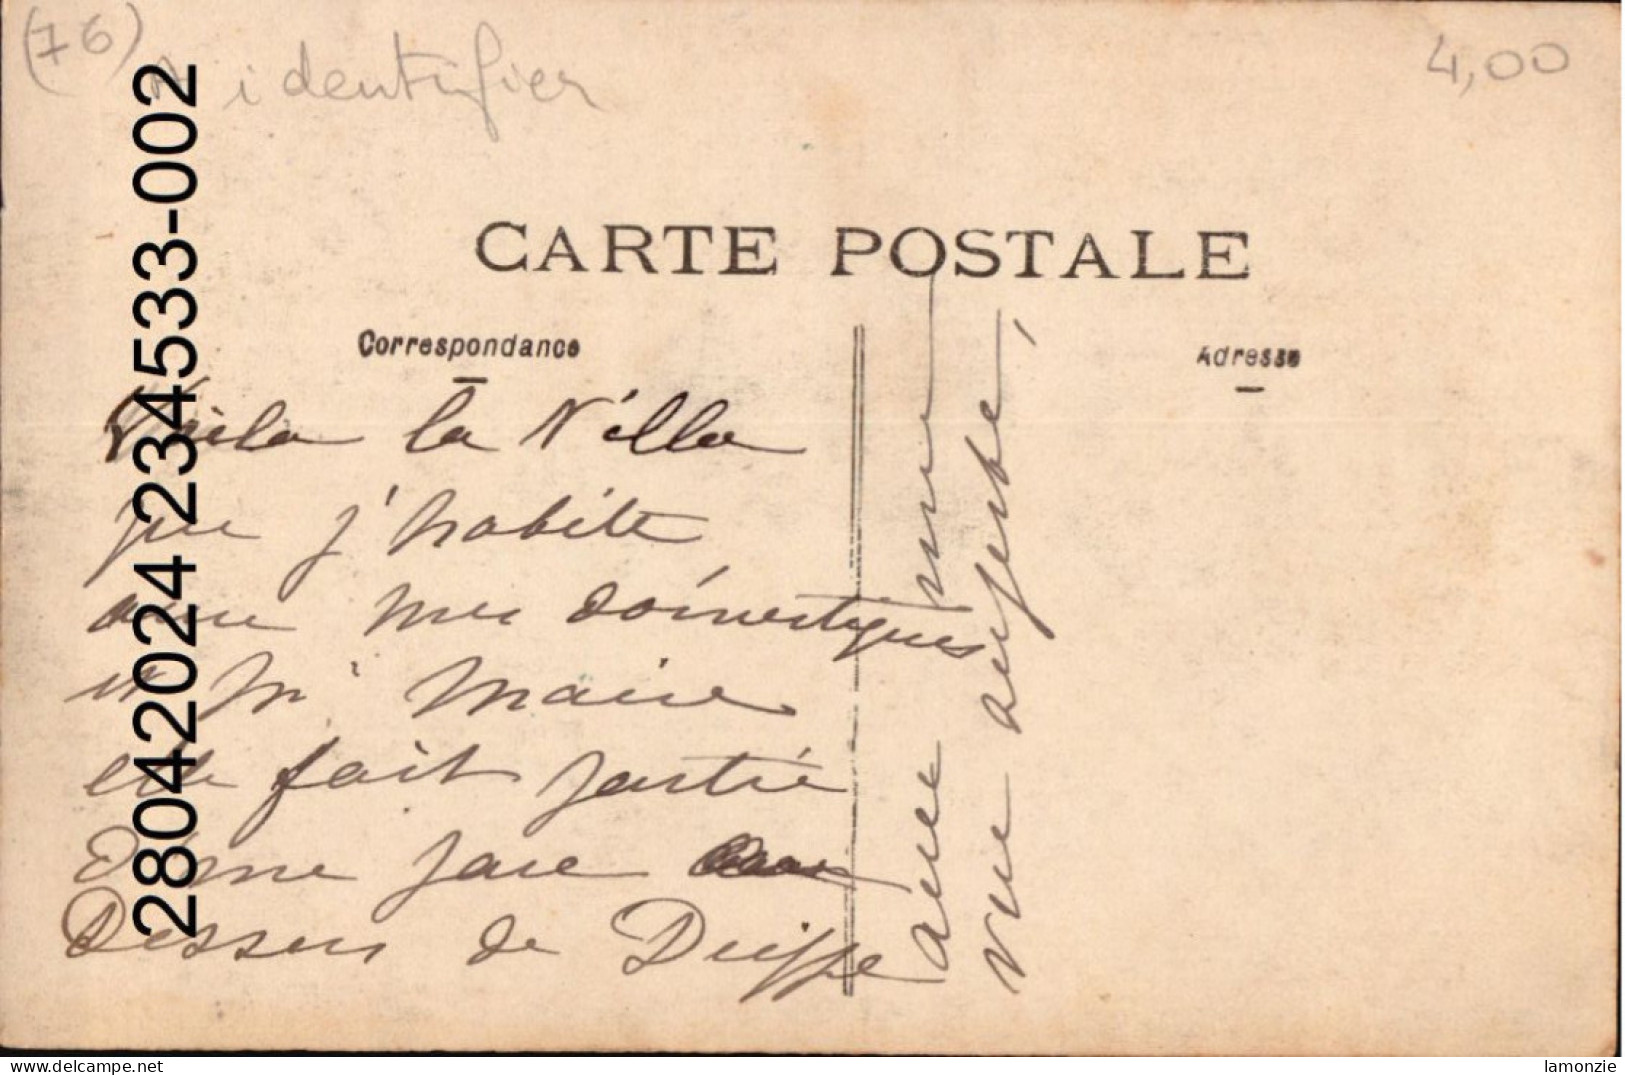 (76)
A identifier
4,00
CARTE POSTALE
Correspondance
Adresse
Voila la Villa
que j'habite
avec mes doimestiques
et Mr Maire
elle fait partie
d'une parc au
Dessus de Dieppe
avec une
vue superbe,
28042024 234533-002
https://www.delcampe.net
lamonzie